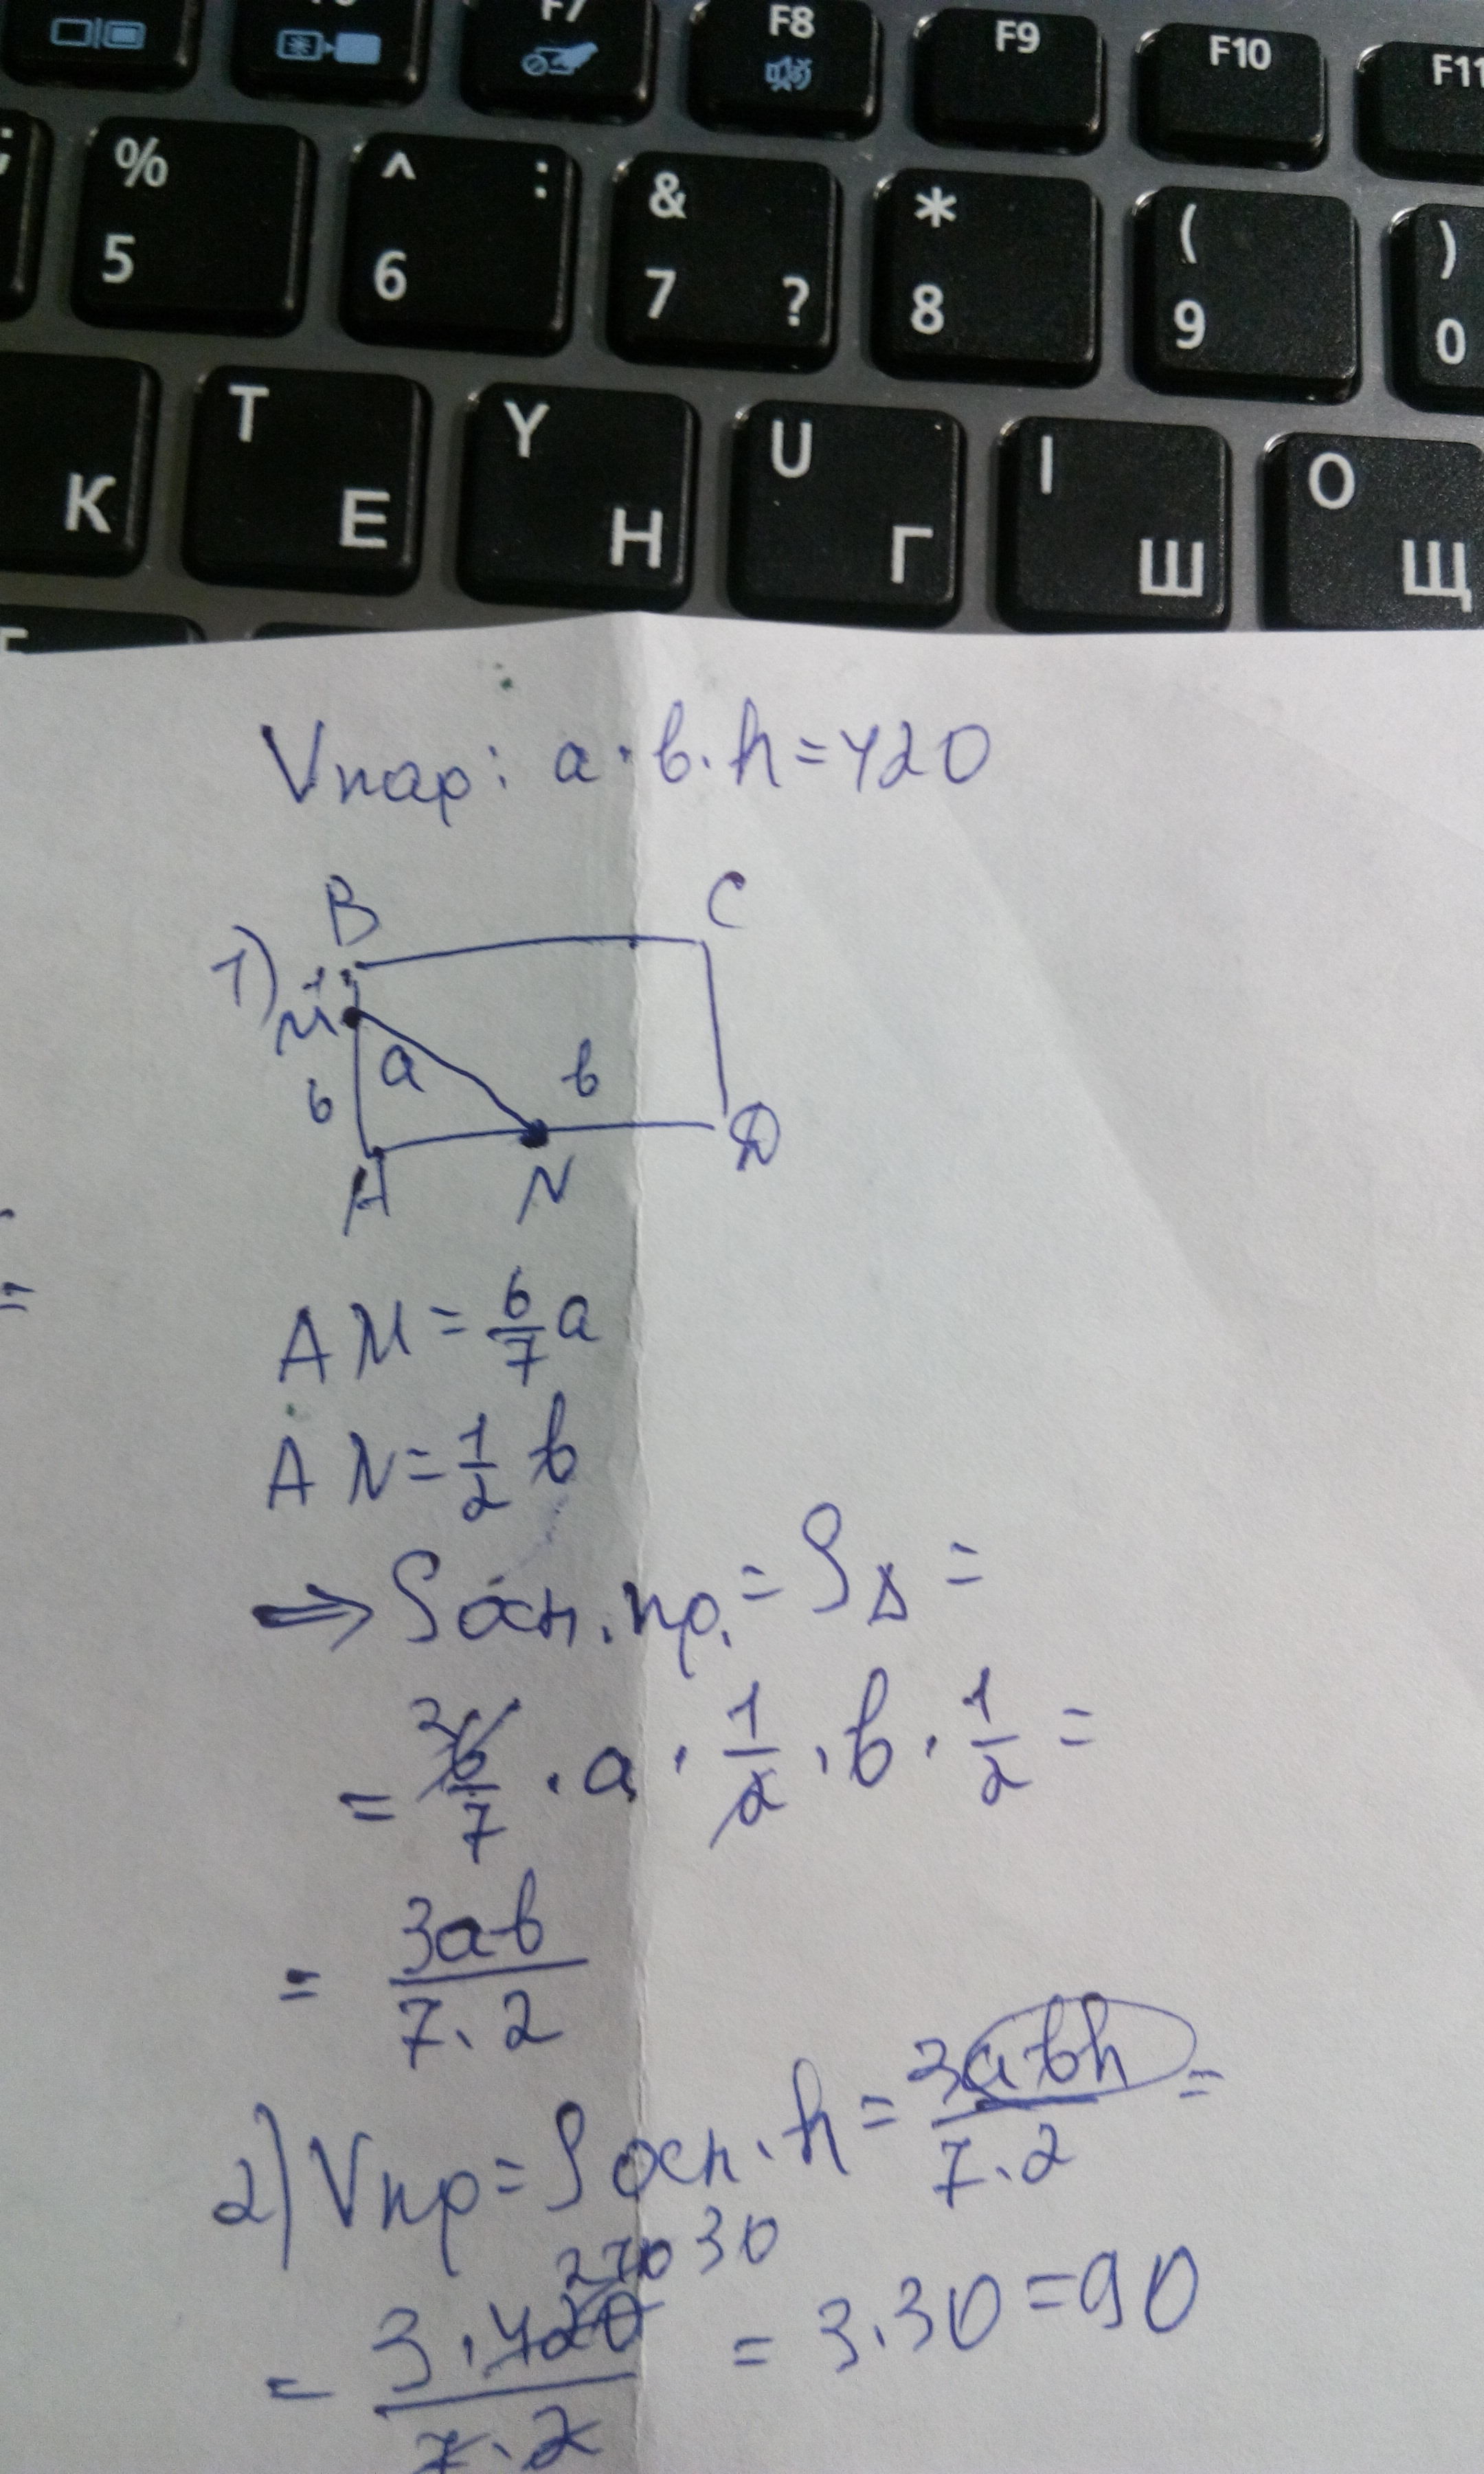 F7 F8 F9 F10 F11
% 5 ^ : 6 & 7 ? * 8 ( 9 ) 0
К T Е Y Н U Г I Ш O Щ
Vпар: a·b·h=420
B C
1) 1
M
6 a b
A N D
AM=6/7 a
AN=1/2 b
⇒ Sосн.пр.=S△=
=3 6/7·a·1/2·b·1/2=
=3ab/7·2
2) Vпр=Sосн·h=3abh/7·2=
210 30
=3·420/7·2 =3·30=90